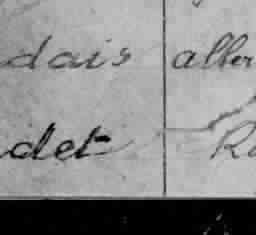 dais alber
det R